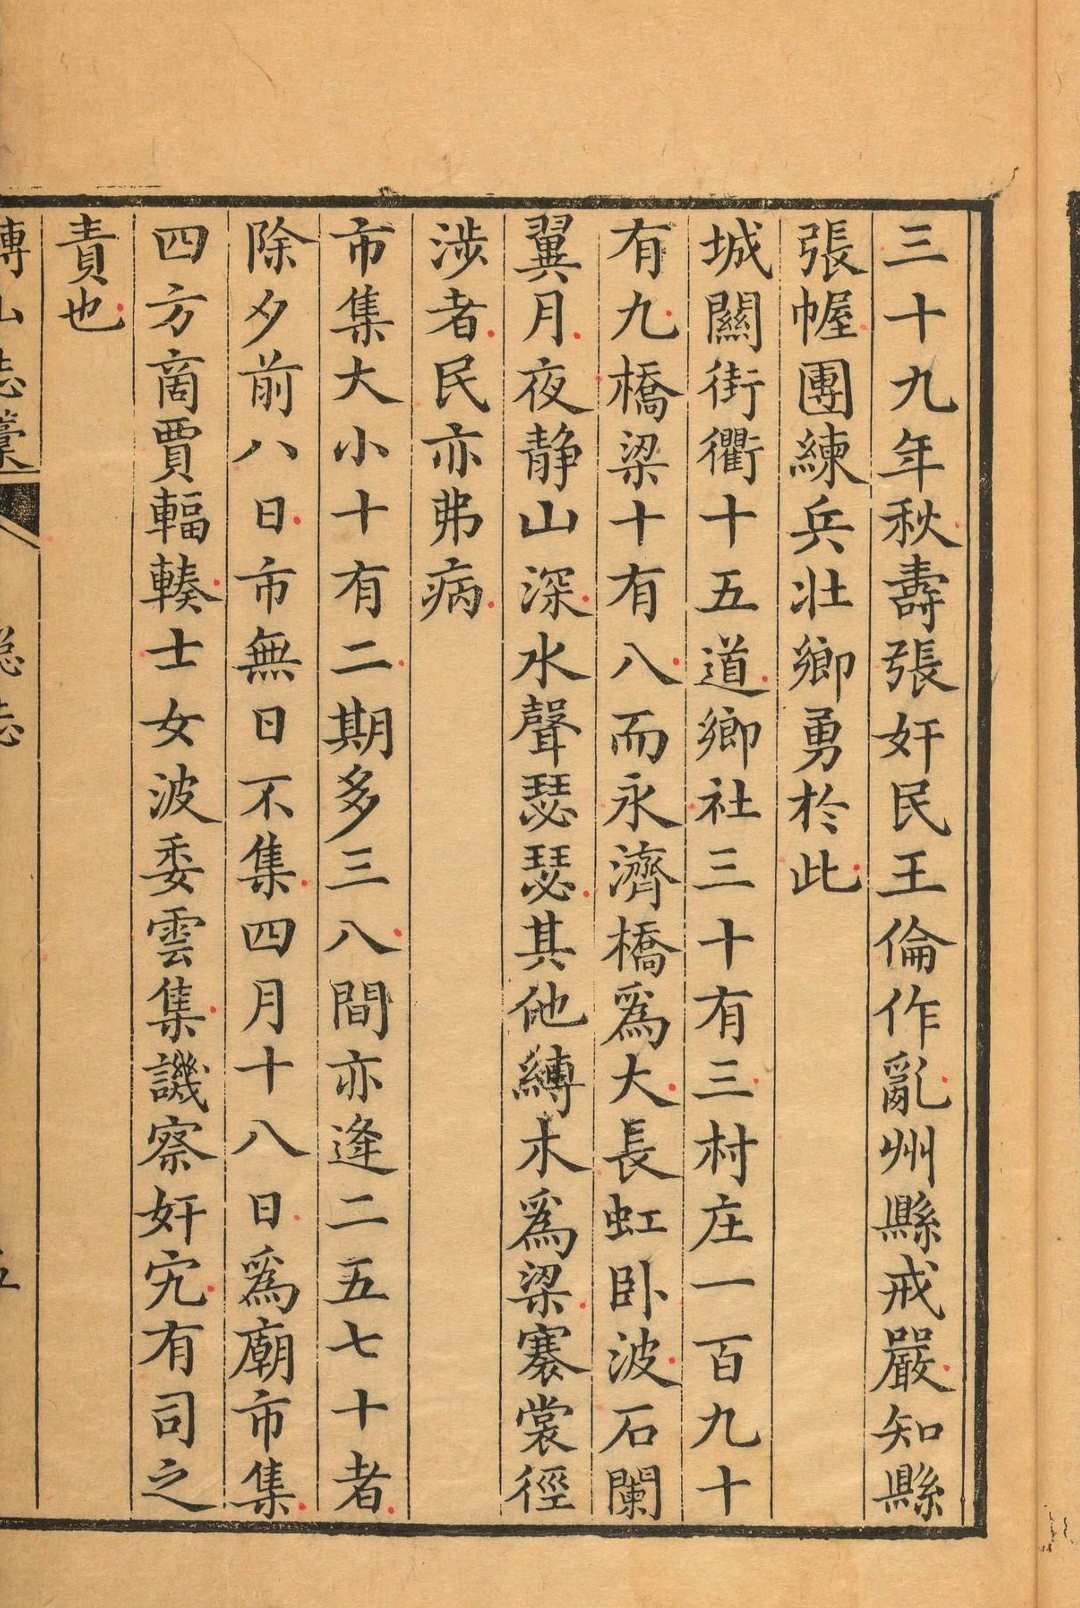 三十九年秋壽張奸民王倫作亂州縣戒嚴知縣
張幄團練兵壯鄉勇於此
城關街衢十五道鄉社三十有三村庄一百九十
有九橋梁十有八而永濟橋爲大長虹卧波石闌
翼月夜静山深水聲瑟瑟其他縛木爲梁褰裳徑
涉者民亦弗病
市集大小十有二期多三八間亦逢二五七十者
除夕前八日市無日不集四月十八日爲廟市集
四方啇賈輻輳士女波委雲集譏察奸宄有司之
責也